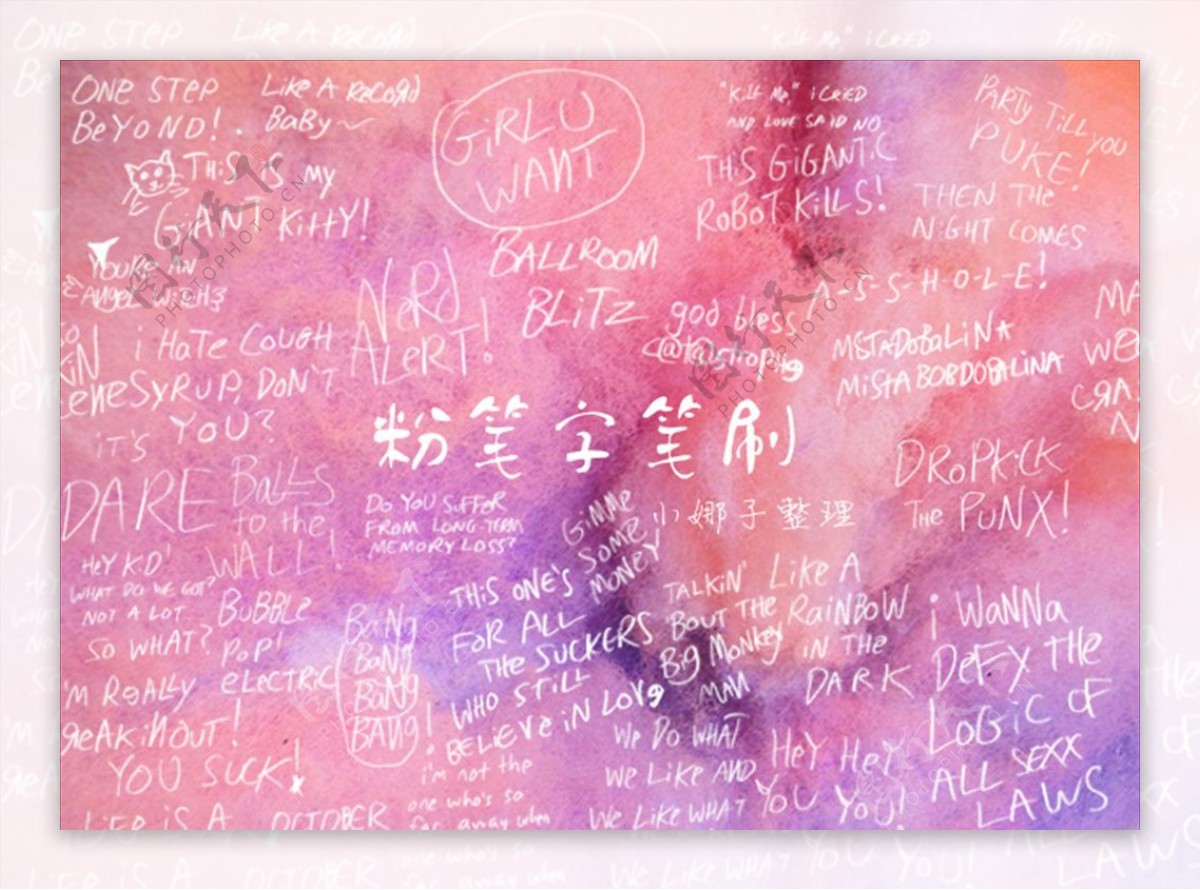 ONE STEP
BEYOND!
LIKE A RECORD
BABY
GIRL U
WANT
"KILL ME" I CRIED
AND LOVE SAID NO
PARTY TILL YOU
PUKE!
THIS IS MY
GIANT KITTY!
THIS GIGANTIC
ROBOT KILLS!
THEN THE
NIGHT COMES
YOU'RE AN
NERD
ALERT!
BALLROOM
BLITZ
god bless
A-S-S-H-O-L-E!
i HATE COUGH
SYRUP, DON'T
YOU?
MISTADOBALINA
MISTA BOBDOBALINA
粉笔字笔刷
小娜子整理
IT'S
DARE
BALLS
to the
WALL!
DO YOU SUFFER
FROM LONG-TERM
MEMORY LOSS?
GIMME
SOME
MONEY
DROPKICK
THE PUNX!
HEY KID!
WHAT DO WE GOT?
NOT A LOT
SO WHAT?
BUBBLE
POP!
ELECTRIC
BANG
BANG
BANG
BANG!
THIS ONE'S
FOR ALL
THE SUCKERS
WHO STILL
BELIEVE IN LOVE
TALKIN'
'BOUT THE
BIG MONKEY
MAN
LIKE A
RAINBOW
IN THE
DARK
i WANNA
DEFY THE
LOGIC OF
ALL SEXX
LAWS
'M REALLY
YOU SUCK!
WE DO WHAT
WE LIKE AND
WE LIKE WHAT
HEY HEY
YOU YOU!
i'm not the
one who's so
far away when
LIFE IS A
OCTOBER